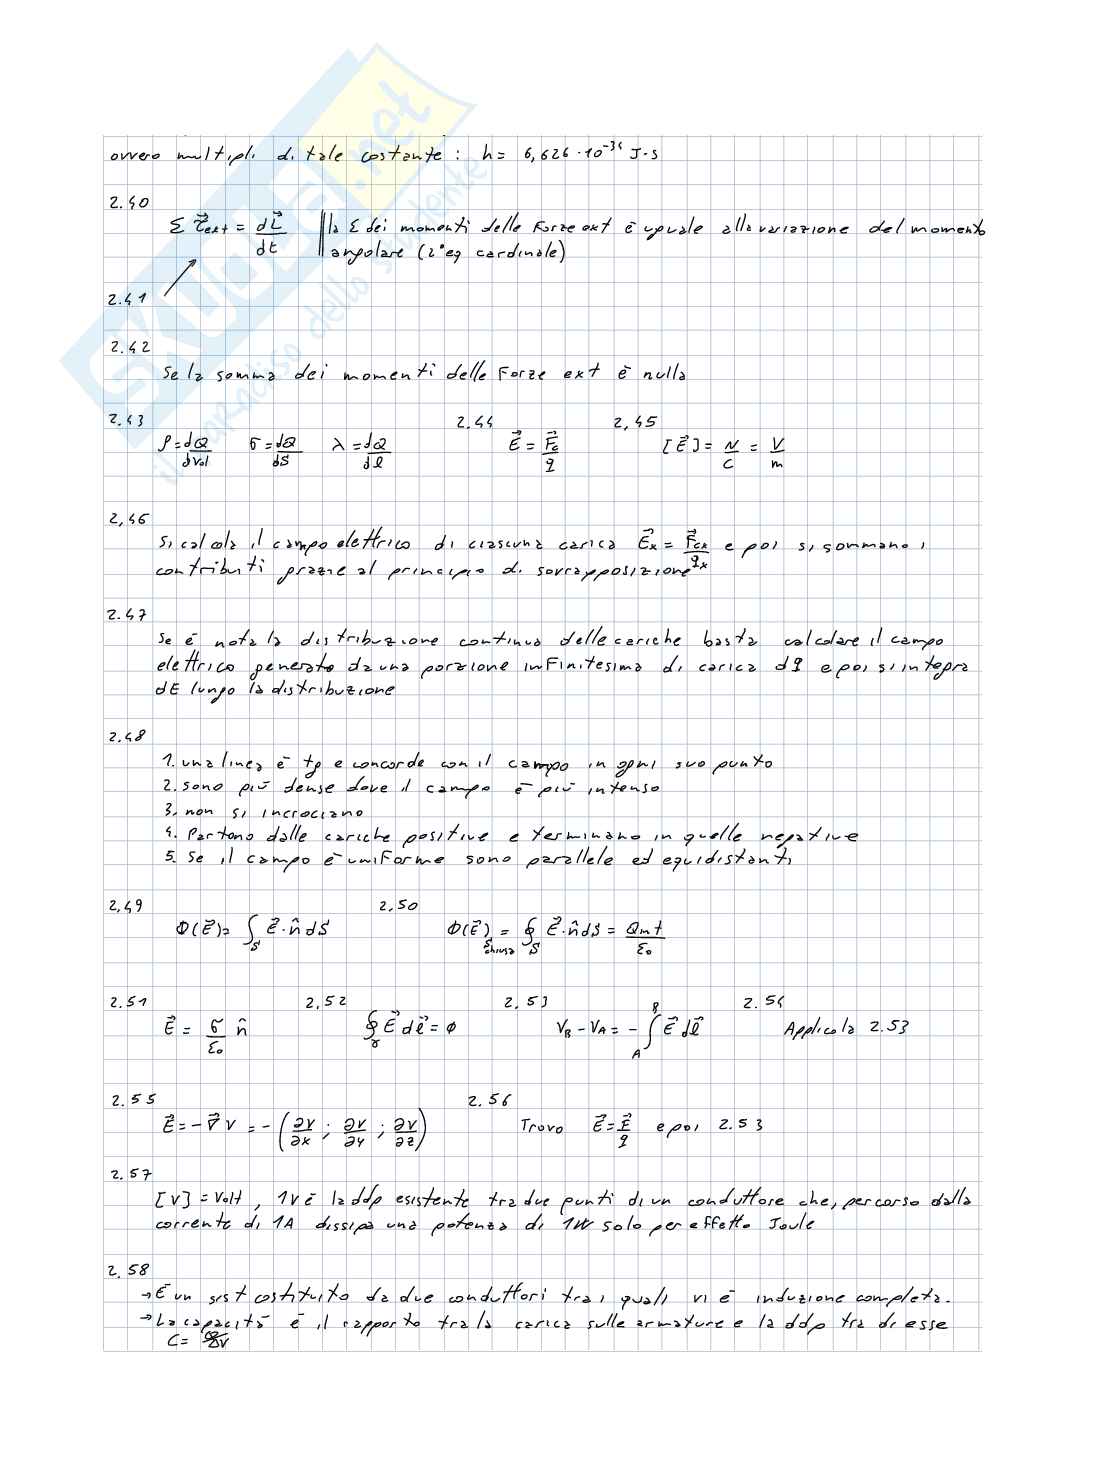 ovvero multipli di tale costante : h = 6,626 · 10^-34 J·s
2.40
Σ τ⃗ext = dL⃗/dt || la Σ dei momenti delle forze ext è uguale alla variazione del momento
angolare (2ª eq cardinale)
2.41
2.42
Se la somma dei momenti delle Forze ext è nulla
2.43 2.44 2,45
ρ = dQ/dVol σ = dQ/dS λ = dQ/dl E⃗ = F⃗e/q [E⃗] = N/C = V/m
2,46
Si calcola il campo elettrico di ciascuna carica E⃗x = F⃗ex/qx e poi si sommano i
contributi grazie al principio di sovrapposizione
2.47
Se è nota la distribuzione continua delle cariche basta calcolare il campo
elettrico generato da una porzione infinitesima di carica dq e poi si integra
dE lungo la distribuzione
2.48
1. una linea è tg e concorde con il campo in ogni suo punto
2. sono più dense dove il campo è più intenso
3. non si incrociano
4. Partono dalle cariche positive e terminano in quelle negative
5. Se il campo è uniforme sono parallele ed equidistanti
2,49 2.50
Φ(E⃗) = ∫S E⃗ · n̂ dS Φ(E⃗)S chiusa = ∮S E⃗ · n̂ dS = Qint/ε0
2.51 2,52 2,53 2.54
E⃗ = σ/ε0 n̂ ∮γ E⃗ dl⃗ = 0 VB - VA = - ∫A^B E⃗ dl⃗ Applico la 2.53
2.55 2.56
E⃗ = - ∇⃗ V = - (∂V/∂x ; ∂V/∂y ; ∂V/∂z) Trovo E⃗ = F⃗/q e poi 2.53
2.57
[V] = Volt , 1V è la ddp esistente tra due punti di un conduttore che, percorso dalla
corrente di 1A dissipa una potenza di 1W solo per effetto Joule
2.58
→ È un sist costituito da due conduttori tra i quali vi è induzione completa.
→ La capacità è il rapporto tra la carica sulle armature e la ddp tra di esse
C = Q/ΔV
SKUOLA.net
il paradiso dello studente